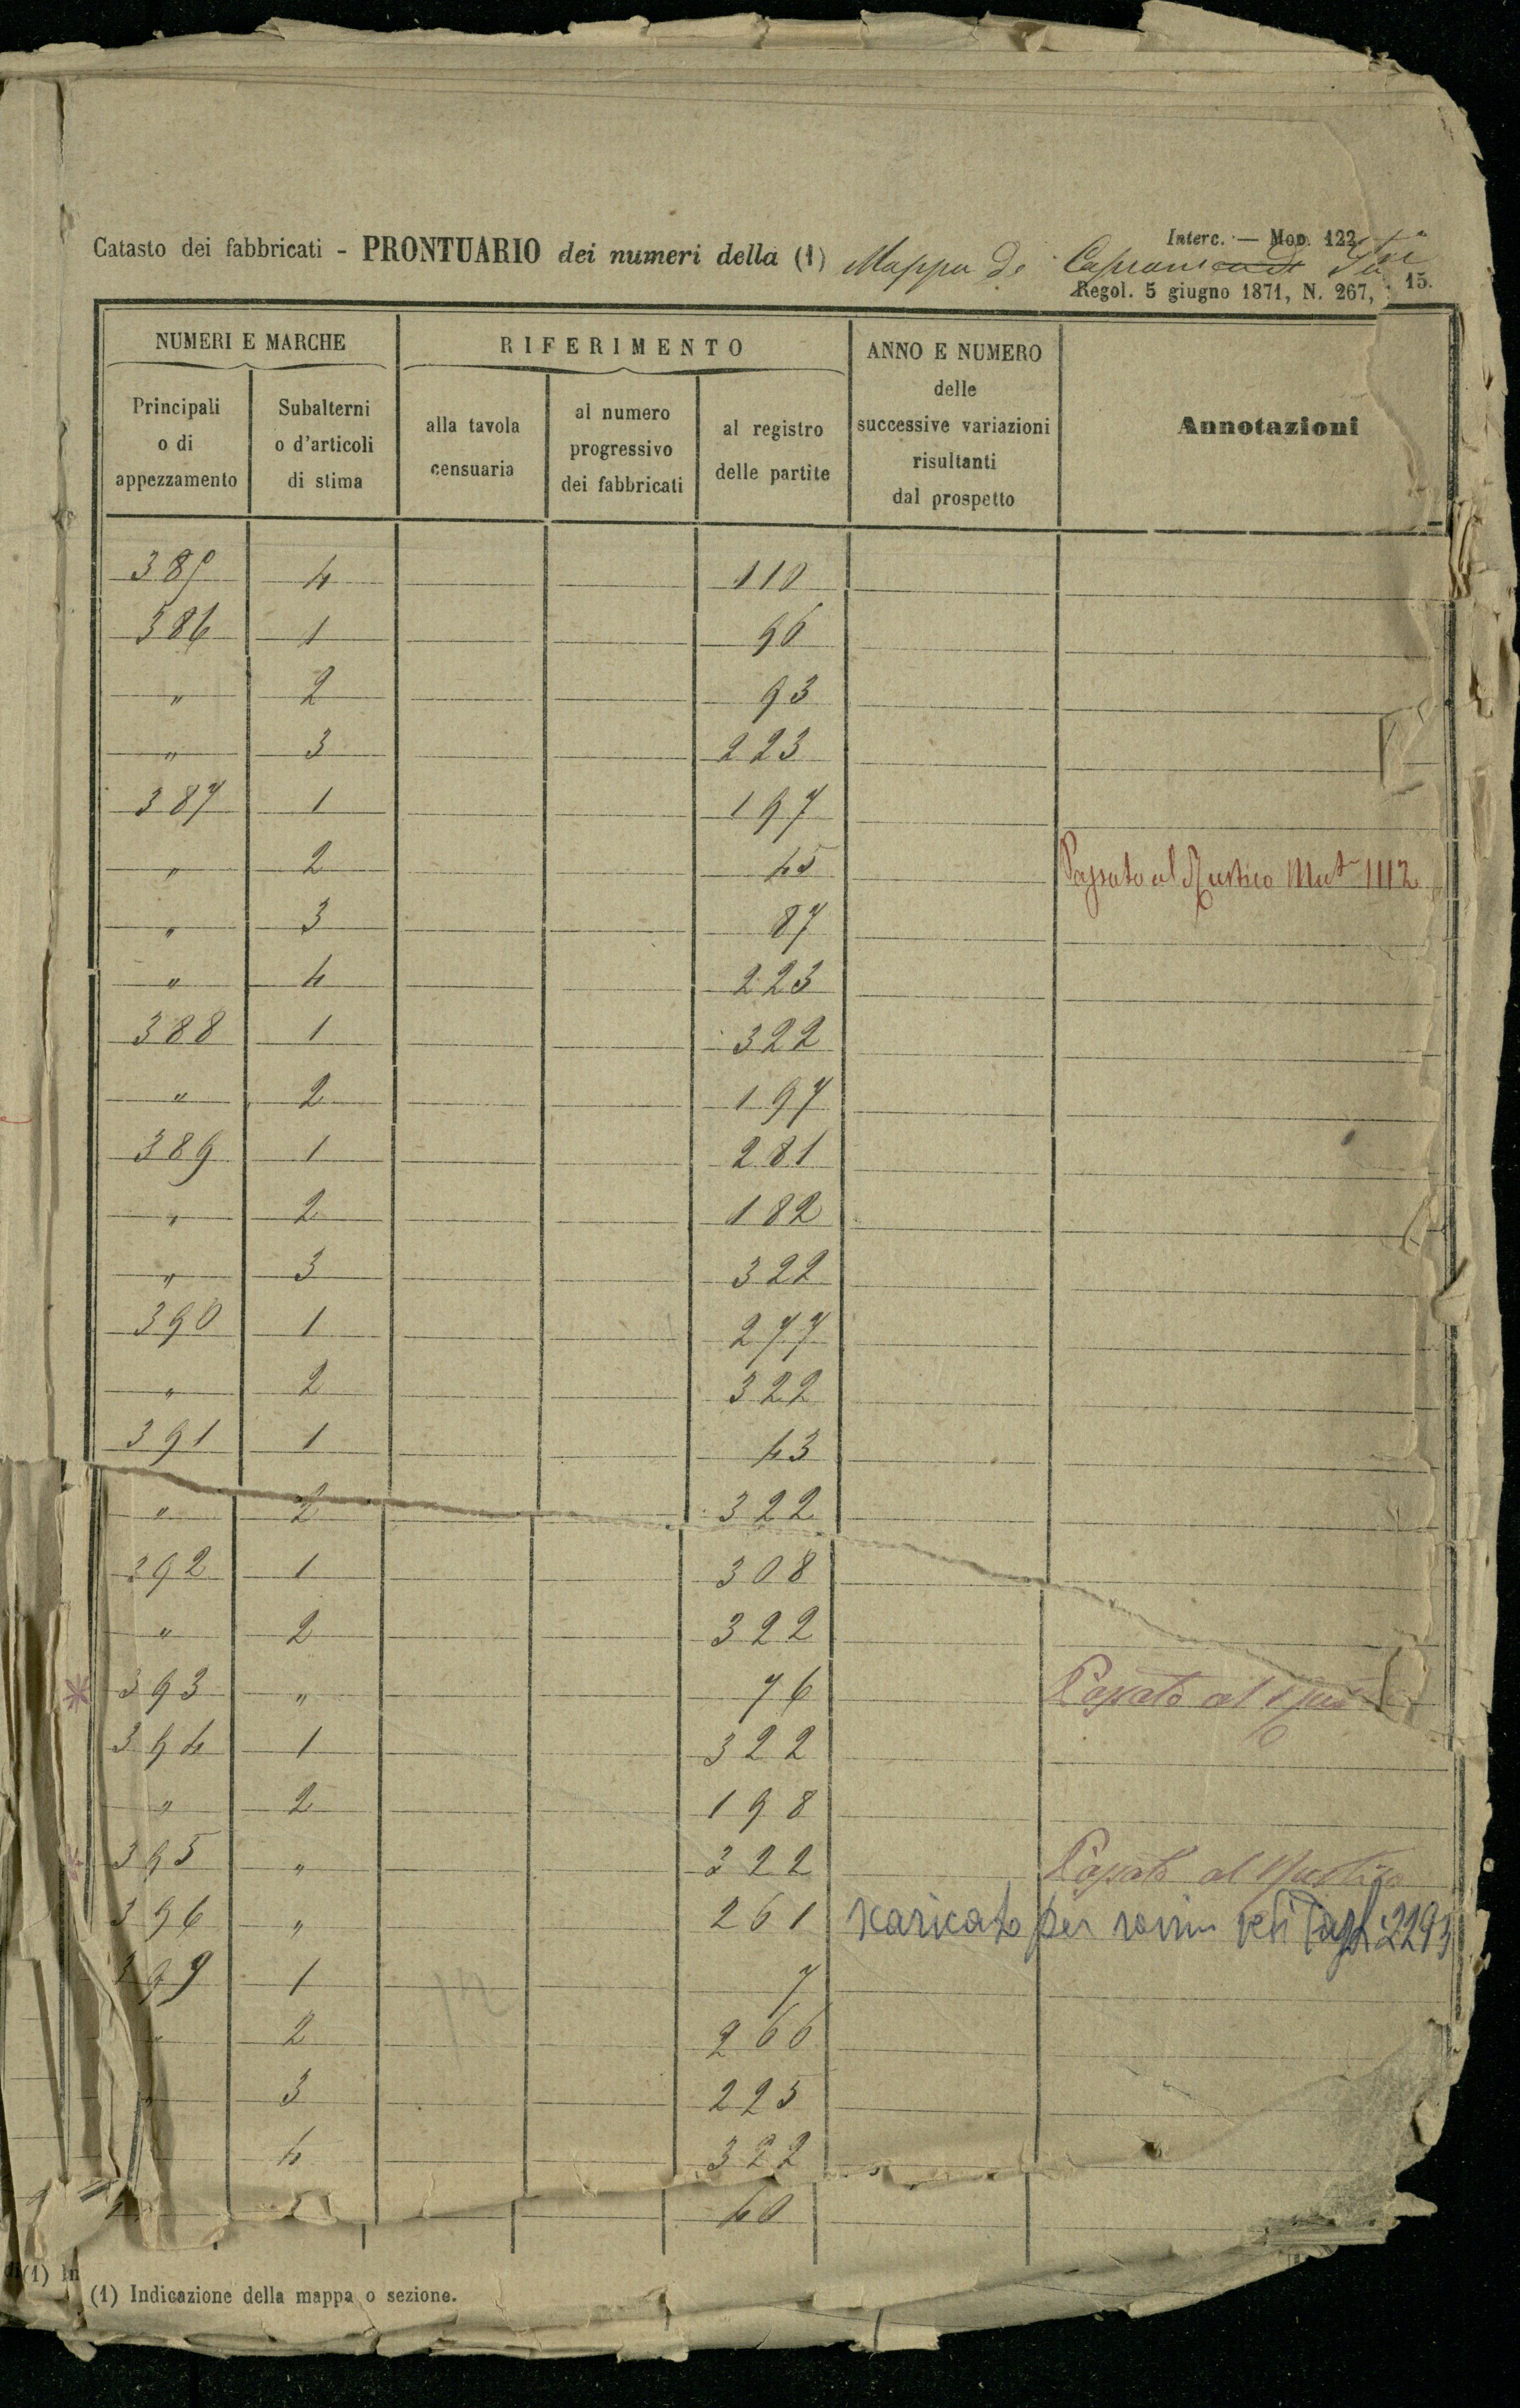 Interc. — Mod. 122
Catasto dei fabbricati - PRONTUARIO dei numeri della (1) Mappa di
Regol. 5 giugno 1871, N. 267, 15.
NUMERI E MARCHE RIFERIMENTO ANNO E NUMERO delle successive variazioni risultanti dal prospetto Annotazioni
Principali o di appezzamento Subalterni o d'articoli di stima alla tavola censuaria al numero progressivo dei fabbricati al registro delle partite
385 4 110
386 1 96
" 2 93
" 3 223
387 1 197
" 2 45 Passato al Rustico Mut 1112
" 3 87
" 4 223
388 1 322
" 2 197
389 1 281
" 2 182
" 3 322
390 1 277
" 2 322
391 1 43
" 2 322
392 1 308
" 2 322
393 " 76 Passato al
394 1 322
" 2 198
395 " 322 Passato al Rustico
396 " 261 scaricato per 2293
1 7
" 2 266
" 3 225
4 322
40
(1) Indicazione della mappa o sezione.